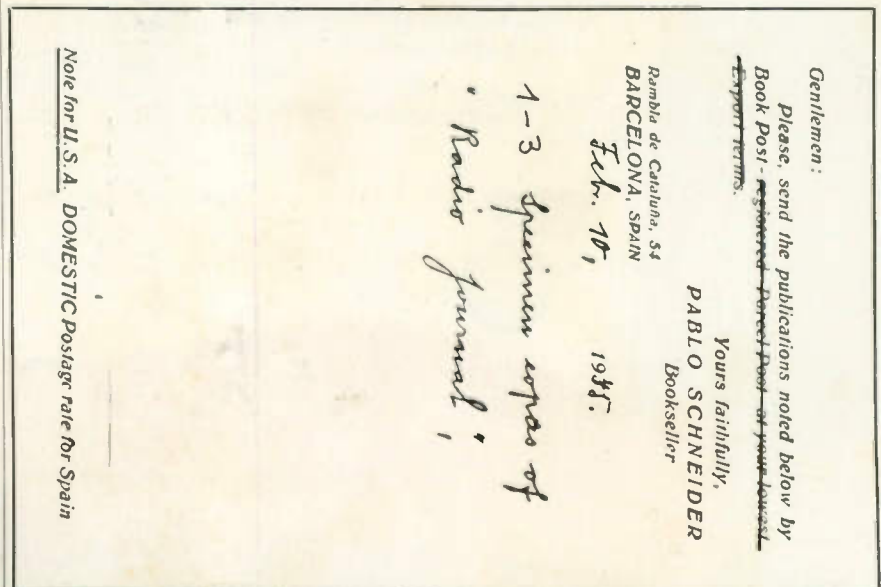 Gentlemen:
Please, send the publications noted below by
Book Post - registered Parcel Post at your lowest
Export terms.
Yours faithfully,
PABLO SCHNEIDER
Bookseller
Rambla de Cataluña, 54
BARCELONA, SPAIN
Feb. 10, 1935.
1-3 Specimen copas of
"Radio Journal",
Note for U.S.A. DOMESTIC Postage rate for Spain